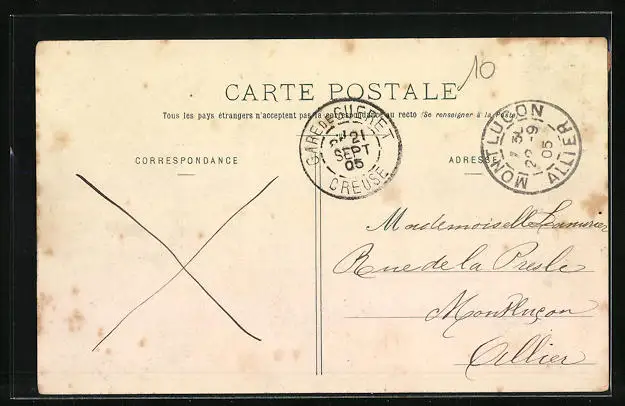 10
CARTE POSTALE
Tous les pays étrangers n'acceptent pas la correspondance au recto (Se renseigner à la Poste)
CORRESPONDANCE
ADRESSE
GARE DE GUÉRET
21
SEPT
05
CREUSE
MONTLUÇON
22 -9
05
ALLIER
Mademoiselle
Rue de la Presle
Montluçon
Allier